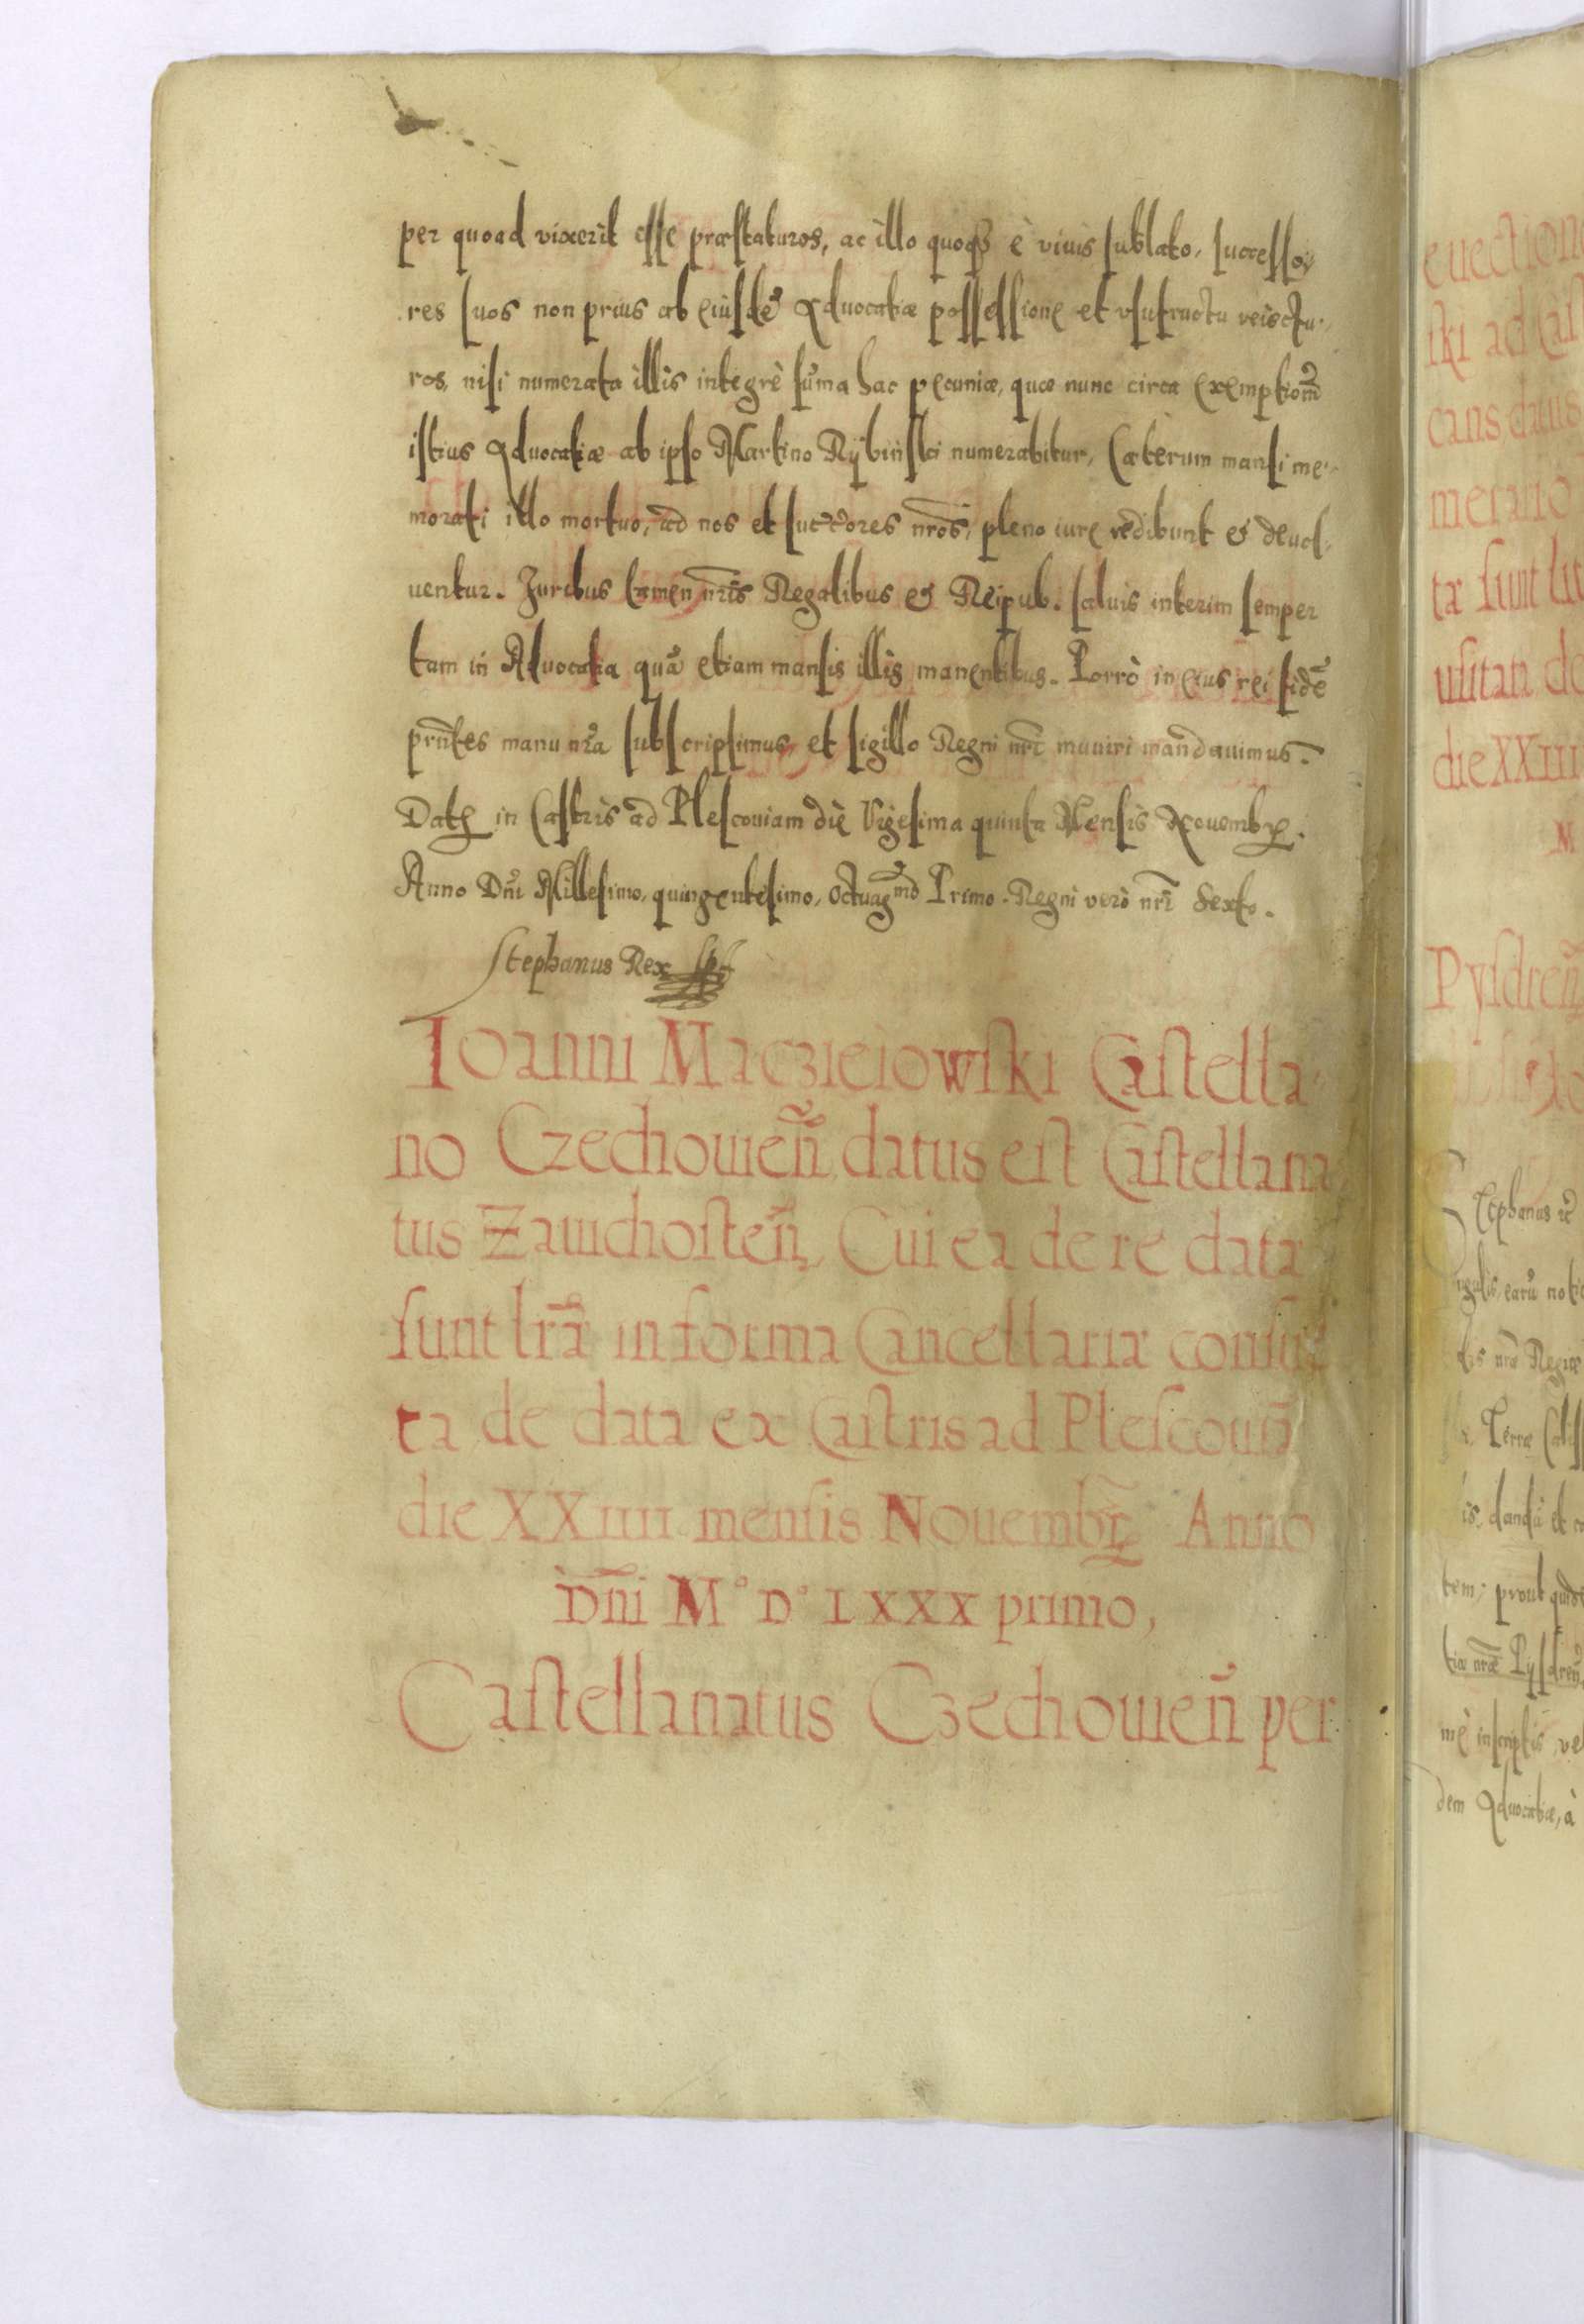 per quoad vixerit esse præstaturos, ac illo quoqꝫ è viuis sublato, successo-
res suos non prius ab eiusdē Aduocatiæ possessione et vsufructu reiectu-
ros, nisi numerata illis integrè sūma hac pecuniæ, quæ nunc circa exemptionē
istius Aduocatiæ ab ipso Martino Rÿbiński numerabitur, Cæterum mansi me-
morati illo mortuo, ad nos et succ̄ores nr̄os, pleno iure redibunt & deuol-
uentur. Iuribus tamen nr̄is Regalibus & Reipub. saluis interim semper
tam in Aduocatia quā etiam mansis illis manentibus. Porrò in eius rei fidē
pn̄tes manu nr̄a subscripsimus, et sigillo Regni nr̄i muniri mandauimus.
Datꝭ in Castris ad Plescouiam die Vigesima quinta Mensis Nouembꝝ.
Anno Dn̄i Millesimo, quingentesimo, octuag̃mo Primo. Regni verò nr̄i Sexto.
Stephanus Rex sst
Ioanni Macziejowski Castella
no Czechouien̄ datus est Castellana
tus Zawichosten̄, Cui ea de re datæ
sunt lr̄æ in forma Cancellariæ consue
ta de data ex Castris ad Plescouiā
die XXIIII mensis Nouembꝝ Anno
Dn̄i M° D° LXXX primo,
Castellanatus Czechouien̄ per
euection
ski ad Cast
cans datus
merario
tæ sunt lit
usitati de
die XXIIII
M
Pysdren̄
Stephanus ꝛc̄
ngulis, earū noti
nr̄æ Regiæ
Terræ Calis
is, dandā et
tem, prout quidē
tiæ nr̄æ Pysdren̄
mē inscriptis, ve
dem Aduocatiæ, à